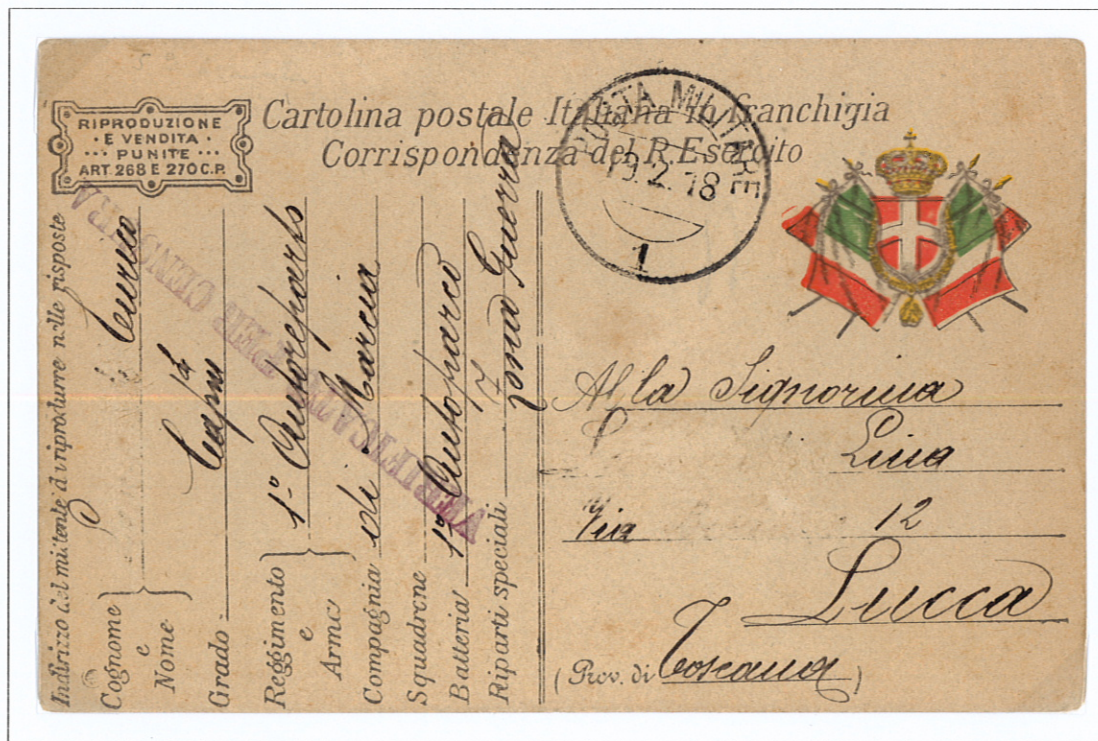 RIPRODUZIONE
· E VENDITA ·
··· PUNITE ···
ART. 268 E 270 C.P.
Cartolina postale Italiana in franchigia
Corrispondenza del R. Esercito
POSTA MILITARE
19.2.18
1
Indirizzo del mittente da riprodurre nelle risposte
Cognome
e
Nome
Grado
Reggimento
e
Arma
1º Autoreparto
Compagnia di Marcia
Squadrone
Batteria 1º Autoparco
Riparti speciali
Zona Guerra
VERIFICATO PER CENSURA
Alla Signorina
Via 12
Lucca
(Prov. di Toscana)